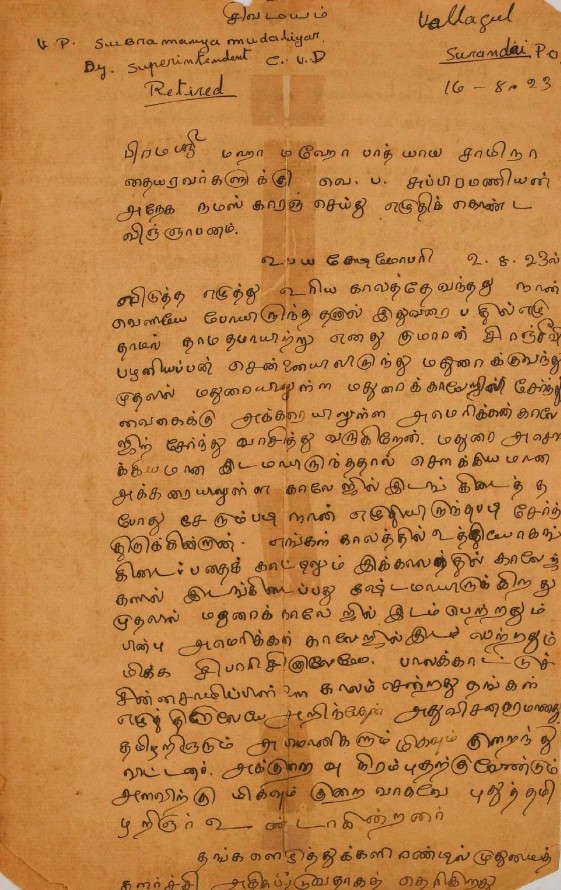 சிவமயம்
V. P. Subramanya Mudaliyar,
Dy. Superintendent C. V. D
Retired
Vallagul
Surandai P.O
16 - 8. 23
பிரமஸ்ரீ மஹா மஹோ பாத்யாய சாமிநா
தையரவர்களுக்கு வெ. ப. சுப்பிரமணியன்
அநேக நமஸ்காரஞ் செய்து எழுதிக் கொண்ட
விஞ்ஞாபனம்.
உபய க்ஷேமோபரி 2. 8. 23ல்
விடுத்த எழுத்து உரிய காலத்தே வந்தது நான்
வெளியே போயிருந்த தனால் இதுவரை பதில் எழு
தாமல் தாமதமாயிற்று எனது குமாரன் சிரஞ்சீவி
பழனியப்பன் சென்னையிலிருந்து மதுரைக்குவந்து
முதலில் மதுரையிலுள்ள மதுரைக்காலேஜில் சேர்ந்து
வைகைக்கு அக்கரையிலுள்ள அமெரிக்கன் காலே
ஜிற் சேர்ந்து வாசித்து வருகிறேன். மதுரை அசௌ
க்கியமான இடமாயிருந்ததால் சௌக்கியமான
அக்கரையிலுள்ள காலேஜில் இடங் கிடைத்த
போது சேரும்படி நான் எழுதியிருந்தபடி சேர்ந்
திருக்கின்றான். எங்கள் காலத்தில் உத்தியோகங்
கிடைப்பதைக் காட்டிலும் இக்காலத்தில் காலேஜ்
களில் இடங்கிடைப்பது கஷ்டமாயிருக்கிறது
முதலில் மதுரைக் காலேஜில் இடம் பெற்றதும்
பின்பு அமெரிக்கன் காலேஜில் இடம் பெற்றதும்
மிக்க சிபாரிசினாலேயே. பாலக்காட்டுச்
சின்சாமிப்பிள்ளை காலம் சென்றது தங்கள்
எழுத்திலேயே அறிந்தேன் அதுவிசனகரமானது
தமிழறிஞரும் அபிமானிகளும் மிகவும் குறைந்து
விட்டனர். அக்குறைவு கிரம்புதற்குவேண்டும்
அளவிற்கு மிகவும் குறைவாகவே புதுத்தமி
ழறிஞர் உண்டாகின்றனர்
தங்களெழுத்துக்களிரண்டில் முதுமைத்
தளர்ச்சி அதிகப்படுவதாகத் தெரிகிறது